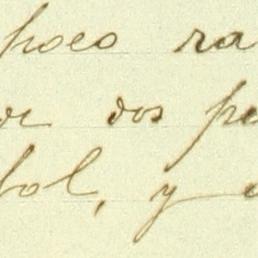 poco ra
or dos pe
bol, y